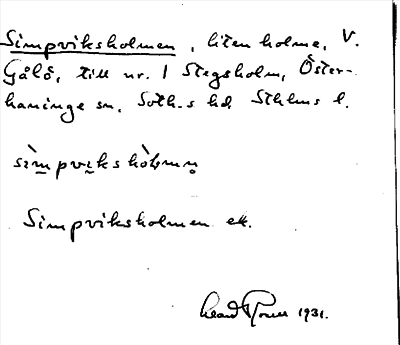 Simpviksholmen, liten holme, V.
Gålö, till nr. 1 Stegsholm, Öster-
haninge sn. Soth-s hd. Sthlms l.
sìmpviks hòlmn̥
Simpviksholmen ek.
1931.